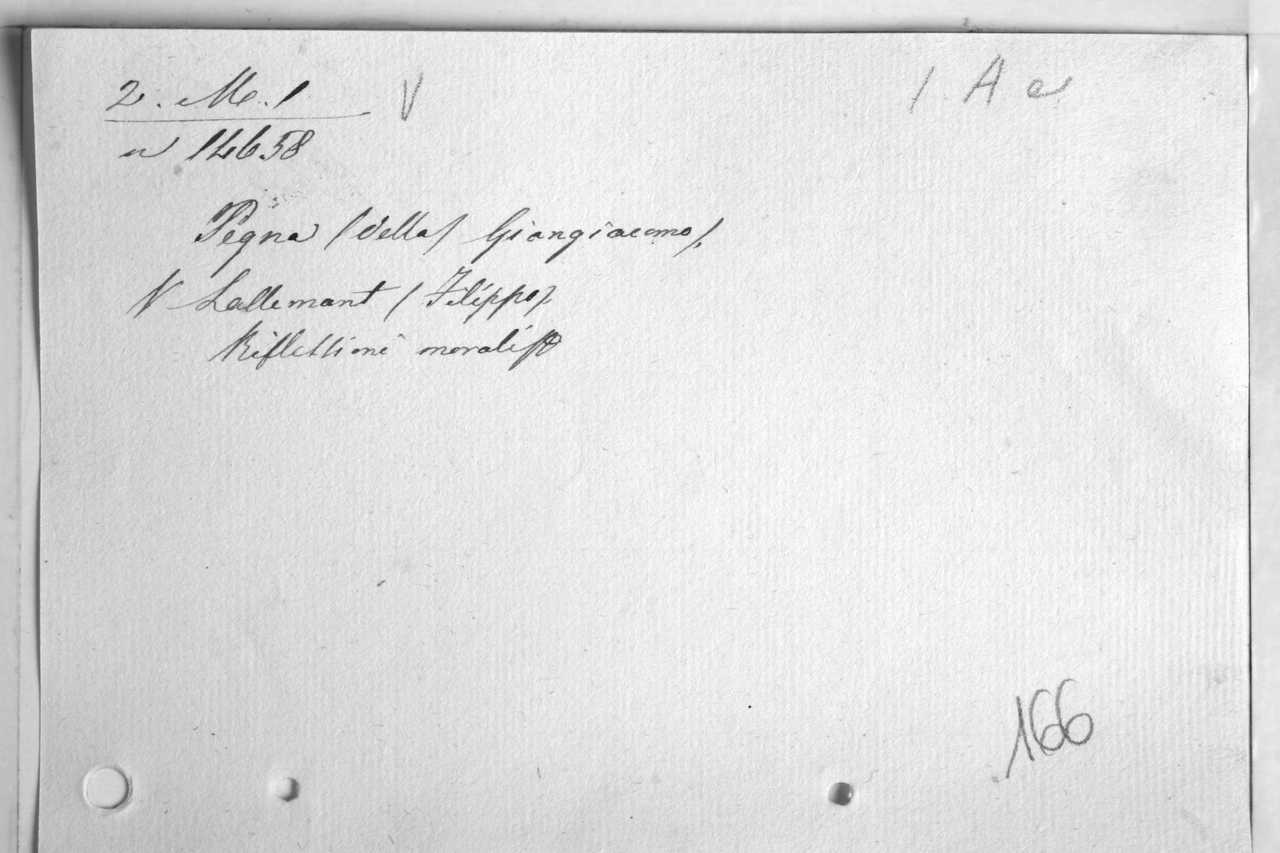 2. M. 1 V 1 A e
n 14658
Pegna (della) Giangiacomo).
V Lallemant (Filippo).
Riflessioni morali
166